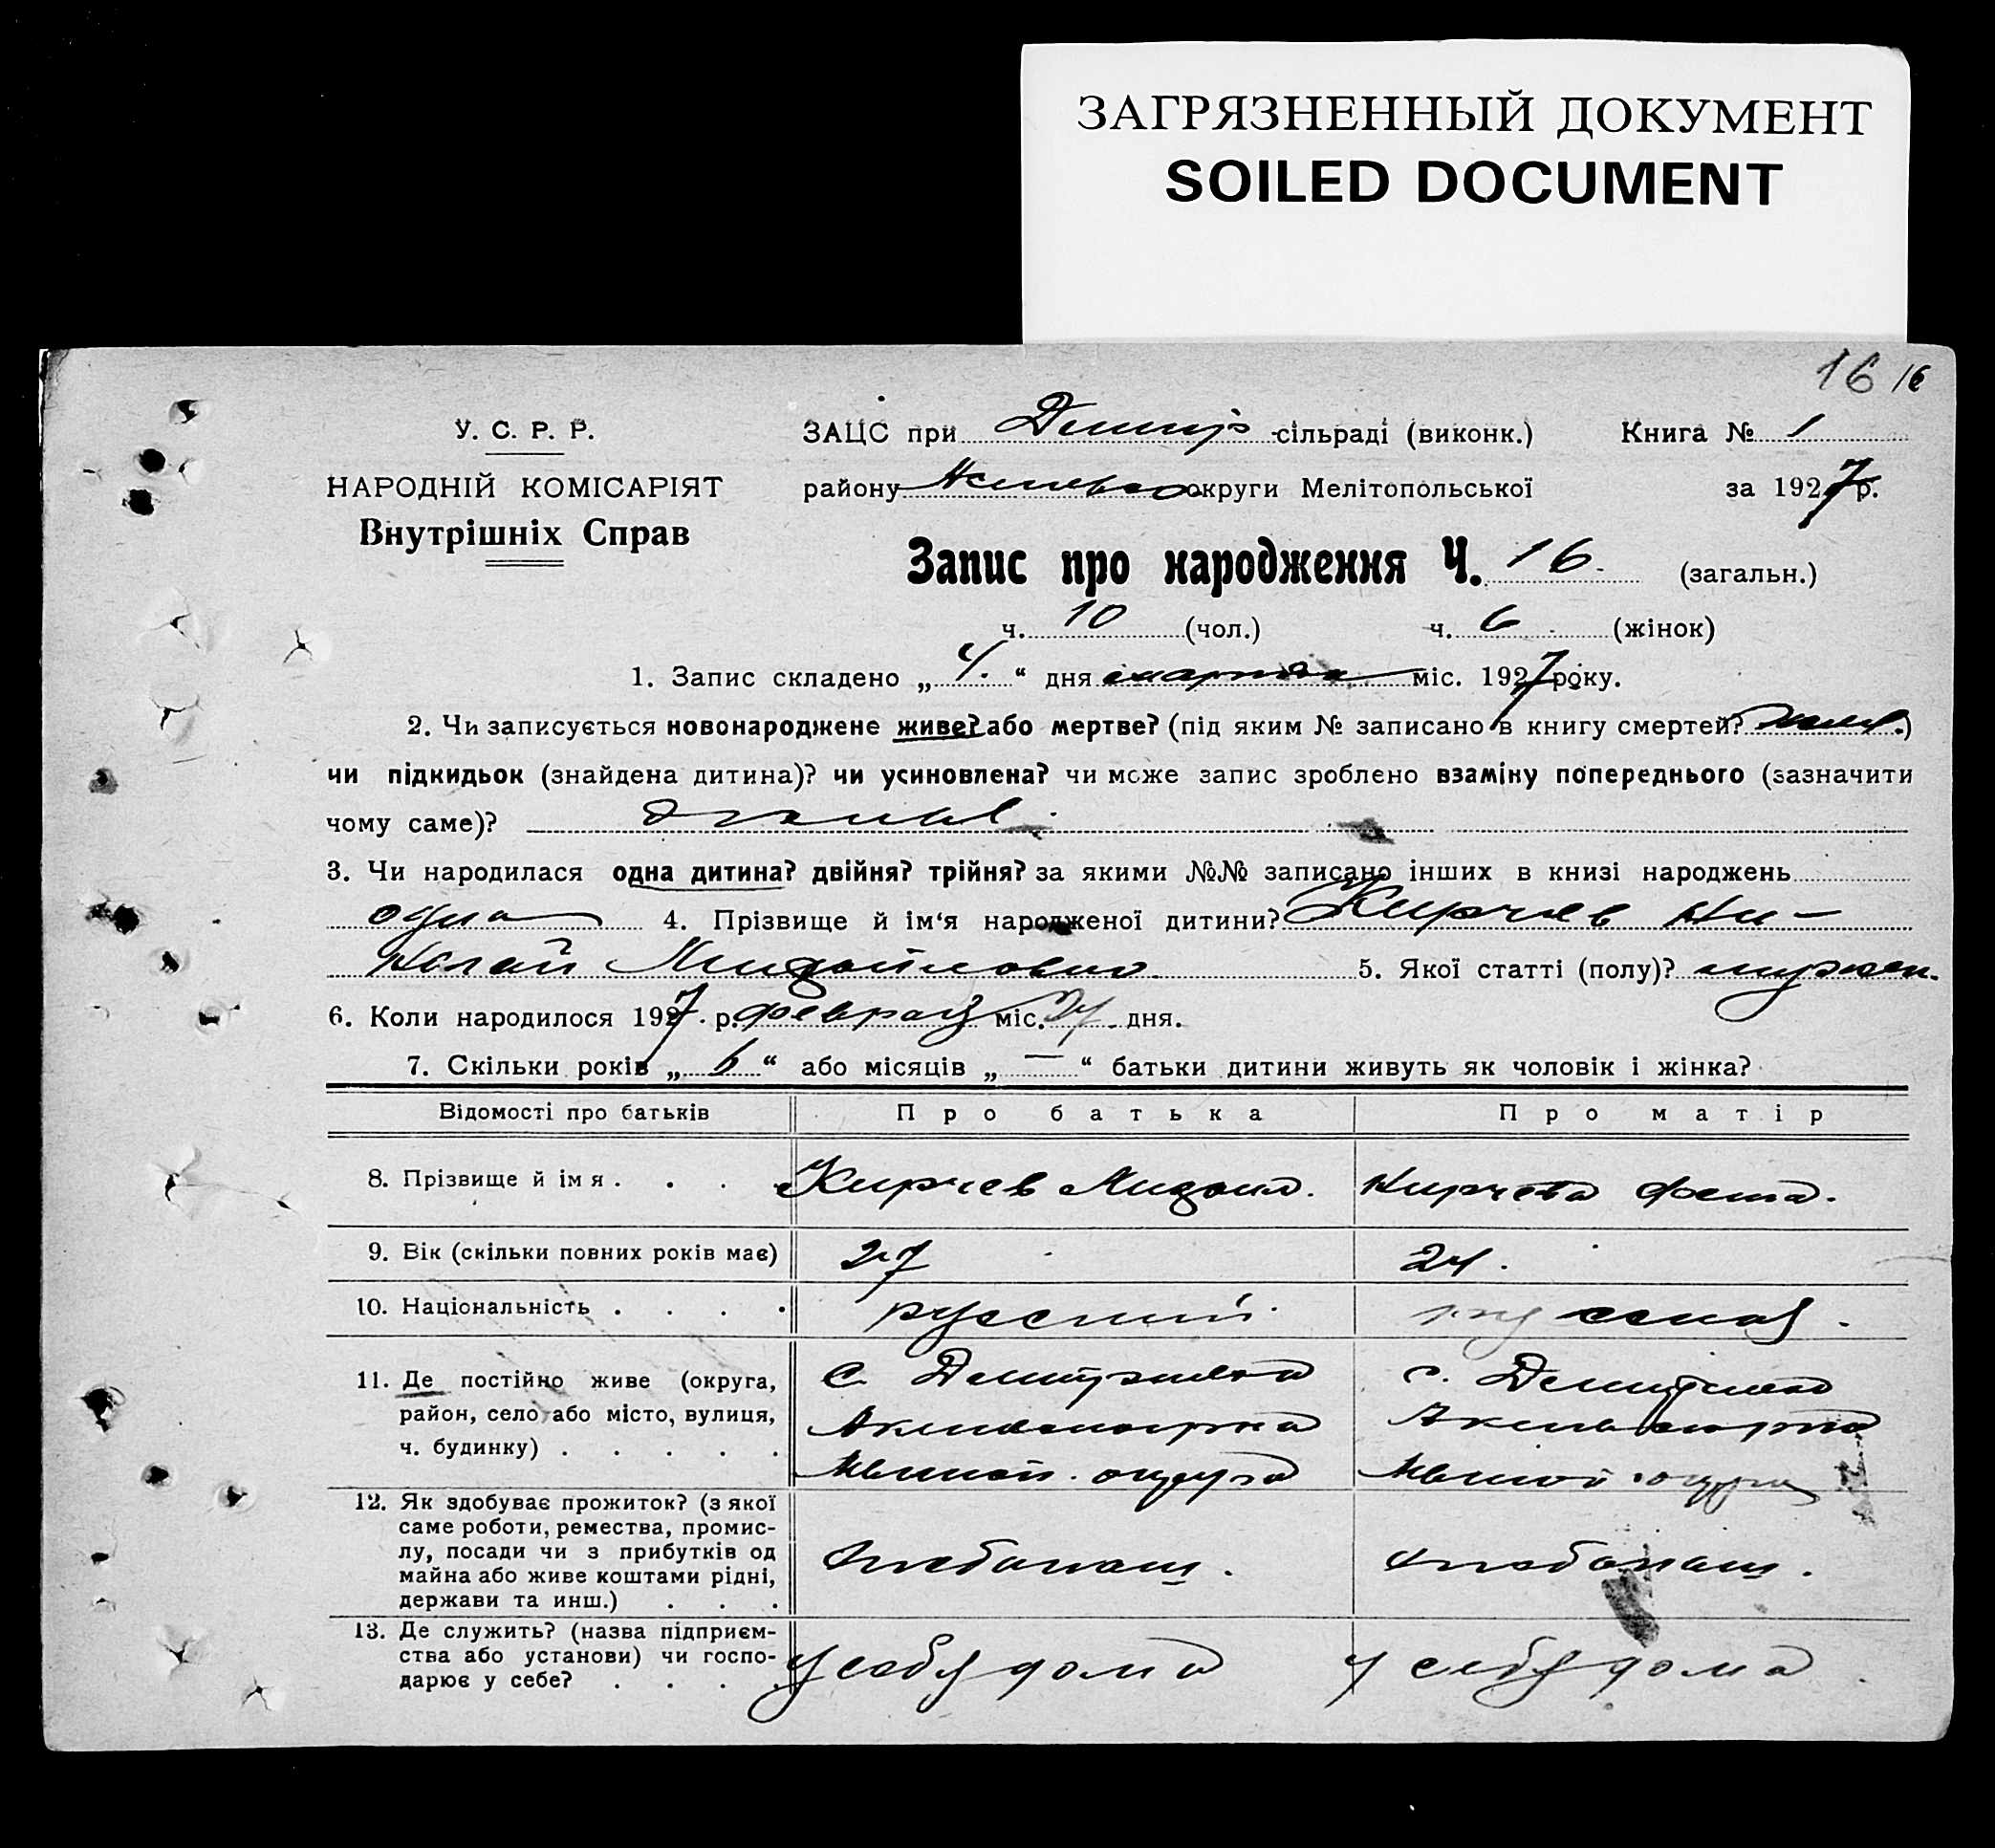 ЗАГРЯЗНЕННЫЙ ДОКУМЕНТ
SOILED DOCUMENT
16 16
У. С. Р. Р.
НАРОДНІЙ КОМІСАРІЯТ
Внутрішніх Справ
ЗАЦС при сільраді (виконк.) Книга № 1
району округи Мелітопольської за 1927 р.
Запис про народження Ч. 16. (загальн.)
ч. 10 (чол.) ч. 6 (жінок)
1. Запис складено „ 4. “ дня марта міс. 1927 року.
2. Чи записується новонароджене живе? або мертве? (під яким № записано в книгу смертей? .)
чи підкидьок (знайдена дитина)? чи усиновлена? чи може запис зроблено взаміну попереднього (зазначити
чому саме)?
3. Чи народилася одна дитина? двійня? трійня? за якими №№ записано інших в книзі народжень
одна 4. Прізвище й ім‘я народженої дитини? Кирчев Ни-
колай Михайлович 5. Якої статті (полу)? мужск.
6. Коли народилося 1927 р. міс. дня.
7. Скільки років „ 6 “ або місяців „ — “ батьки дитини живуть як чоловік і жінка?
Відомості про батьків Про батька Про матір
8. Прізвище й імя . . . . Кирчев Михаил. Кирчева
9. Вік (скільки повних років має) 27 24.
10. Національність . . . . русский. русская.
11. Де постійно живе (округа,
район, село або місто, вулиця,
ч. будинку) . . . . .
с. Дмитровка
округа
с. Дмитровка
округа
12. Як здобуває прожиток? (з якої
саме роботи, ремества, промис-
лу, посади чи з прибутків од
майна або живе коштами рідні,
держави та инш.) . . .
хлебопаш. хлебопаш.
13. Де служить? (назва підприєм-
ства або установи) чи госпо-
дарює у себе? . . . .
у себя дома у себя дома.